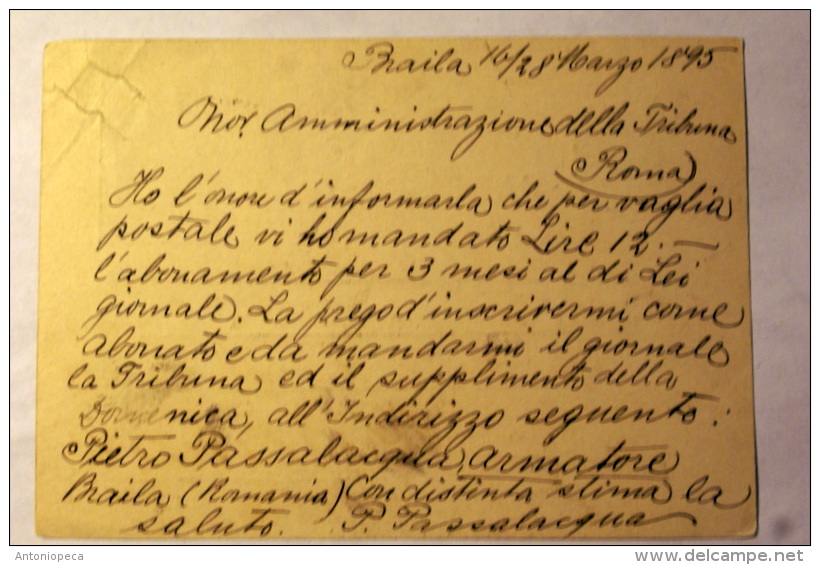 Braila 16/28 Marzo 1895
Amministrazione della Tribuna
Roma
Ho l'onore d'informarla che per vaglia
postale vi ho mandato Lire 12.—
l'abonamento per 3 mesi al di Lei
giornale. La prego d'inscrivermi come
abonato e da mandarmi il giornale
la Tribuna ed il supplimento della
Domenica, all'Indirizzo seguento:
Pietro Passalacqua, armatore
Braila (Romania) Con distinta stima la
saluto. P. Passalacqua
Antoniopeca
www.delcampe.net